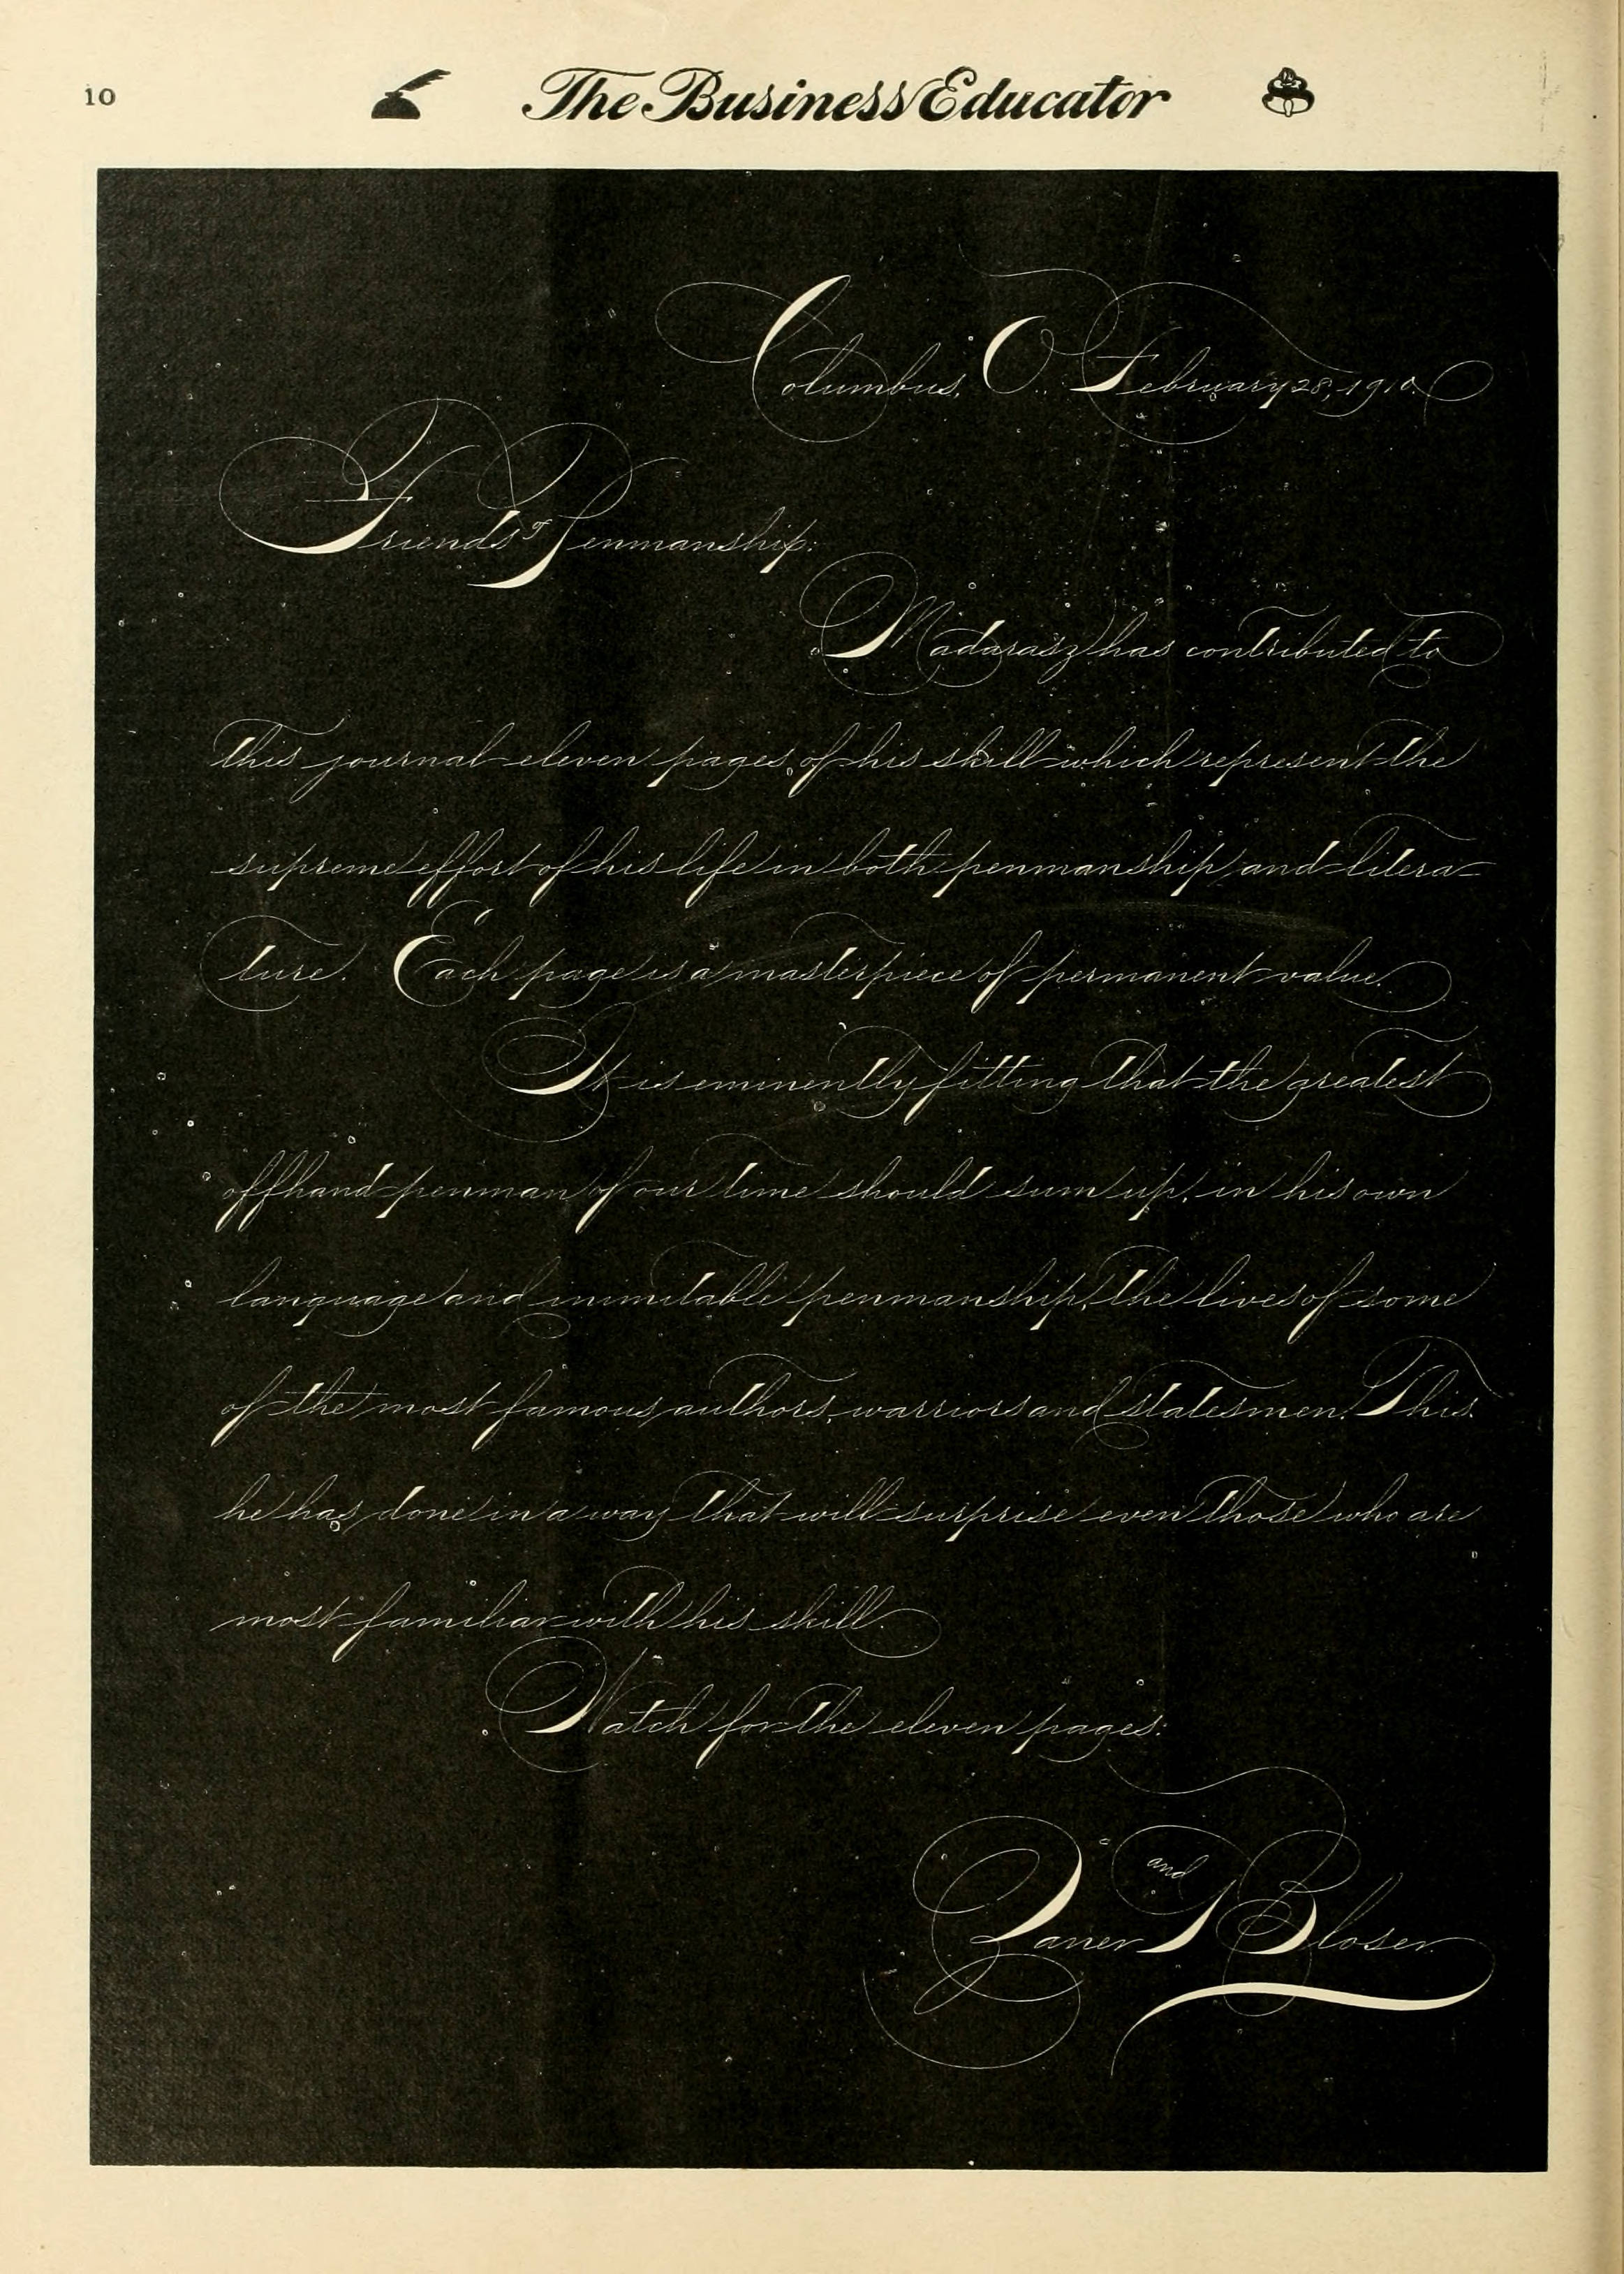 10
The Business Educator
Columbus, O., February 28, 1910.
Friends of Penmanship:
Madarasz has contributed to
this journal eleven pages of his skill which represent the
supreme effort of his life in both penmanship and litera-
ture. Each page is a masterpiece of permanent value.
It is eminently fitting that the greatest
offhand penman of our time should sum up, in his own
language and inimitable penmanship, the lives of some
of the most famous authors, warriors and statesmen. This
he has done in a way that will surprise even those who are
most familiar with his skill.
Watch for the eleven pages.
Zaner and Bloser